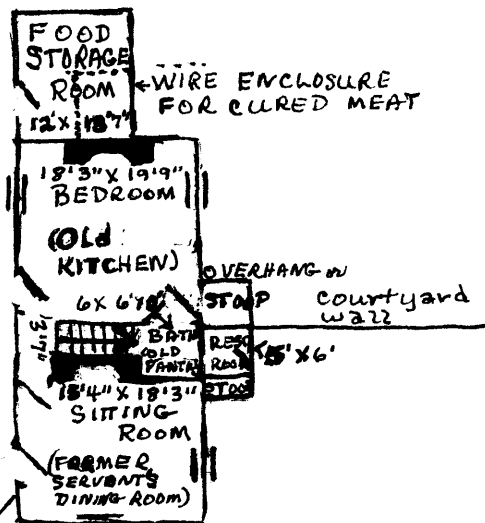 FOOD
STORAGE
ROOM
12' X 13'7"
WIRE ENCLOSURE
FOR CURED MEAT
18'3" X 19'9"
BEDROOM
(OLD
KITCHEN)
OVERHANG ON
STOOP
courtyard
wall
BATH
(OLD
PANTRY)
ROOM
5' X 6'
STOOP
15'4" X 18'3"
SITTING
ROOM
(FORMER
SERVANTS
DINING ROOM)